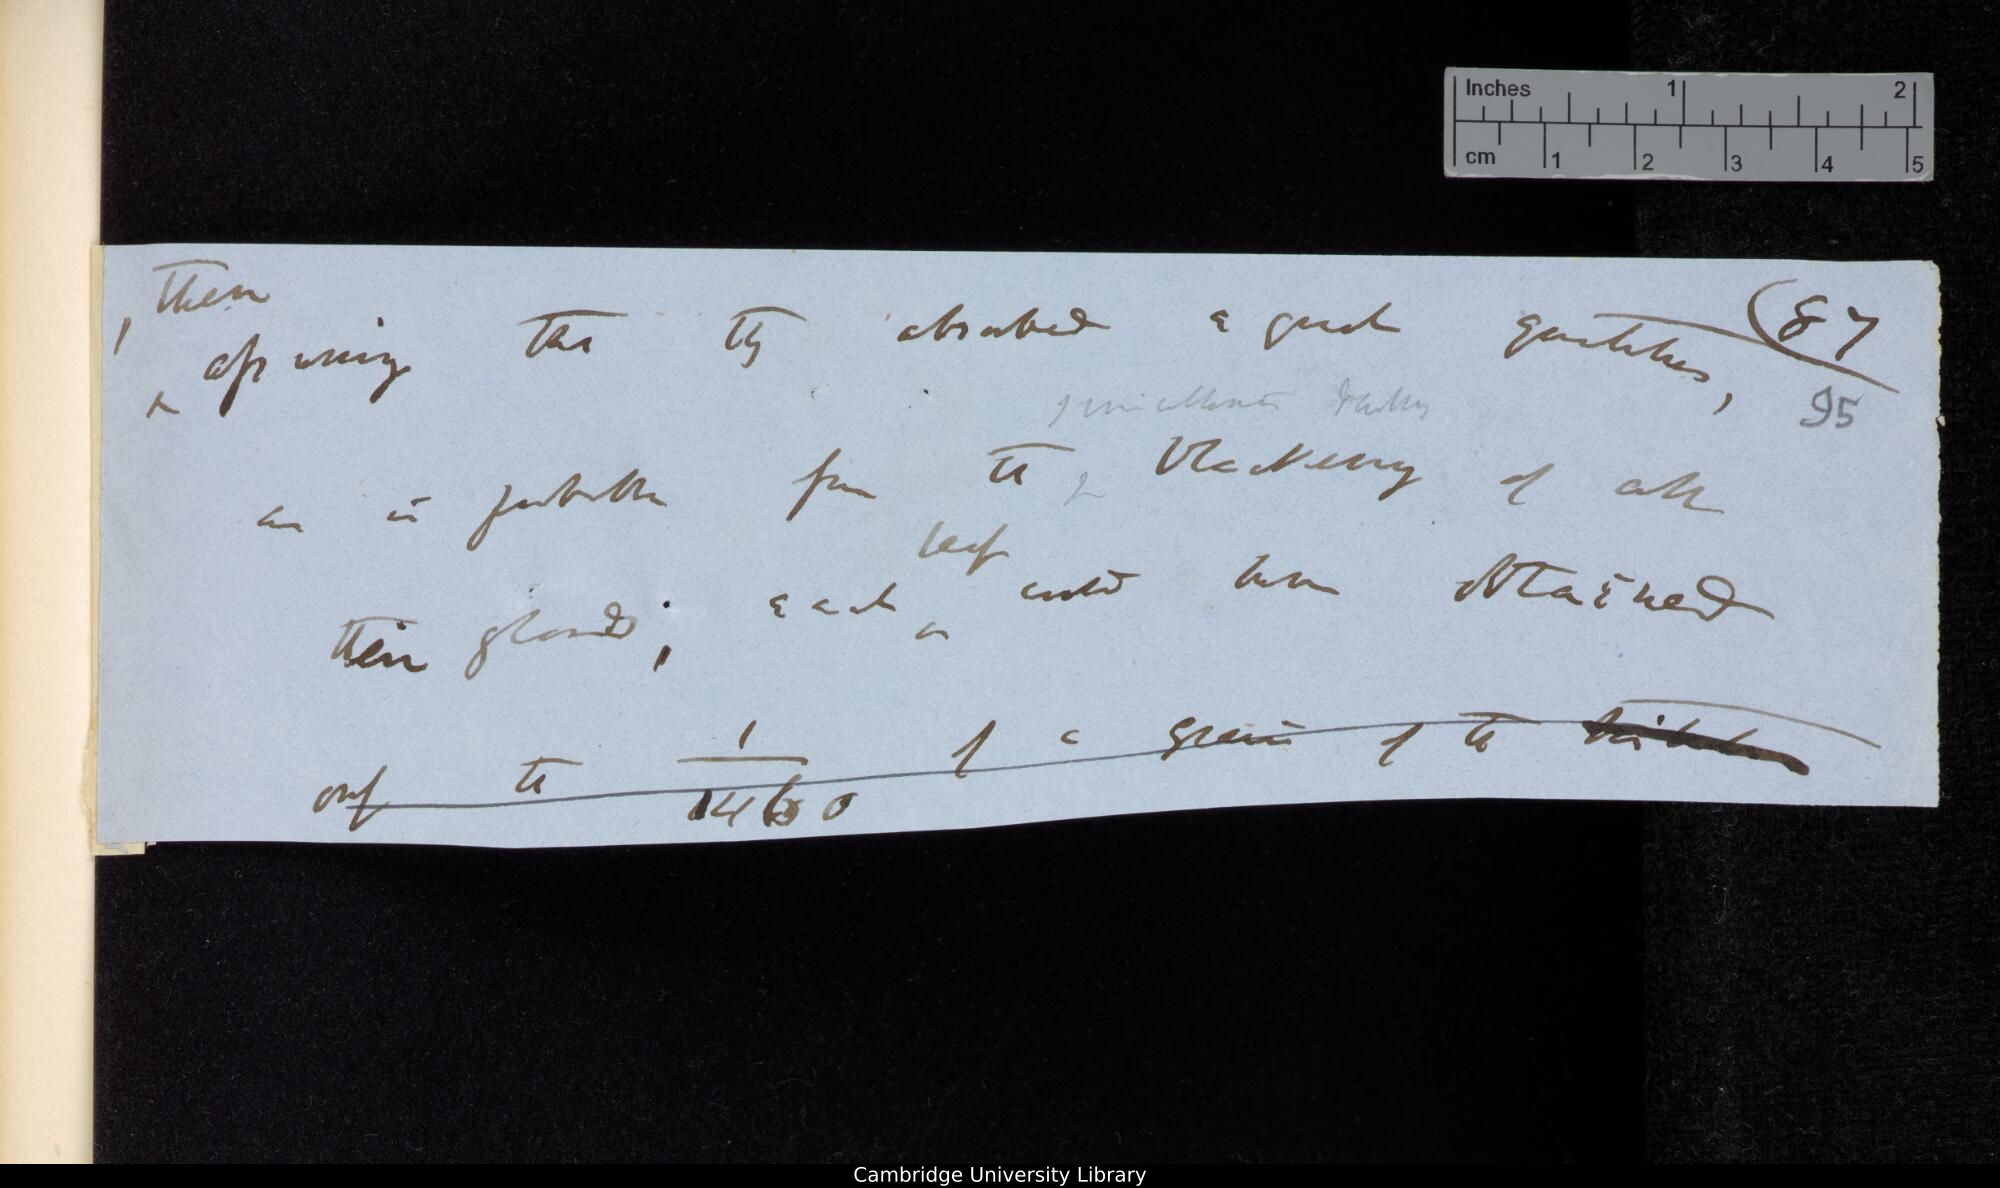 Inches 1 2
cm 1 2 3 4 5
, then
assuming that they absorbed equal quantities, (87
95
as is probable from the blackening of all
leaf
their glands, each ^ could have obtained
only the 1/1480 of a grain of the
Cambridge University Library